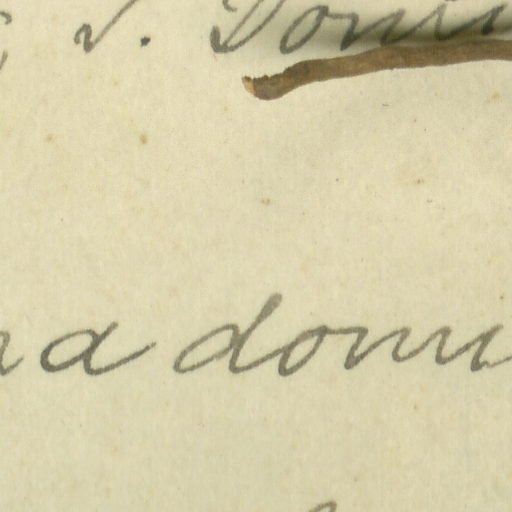 S. Domi
a domi